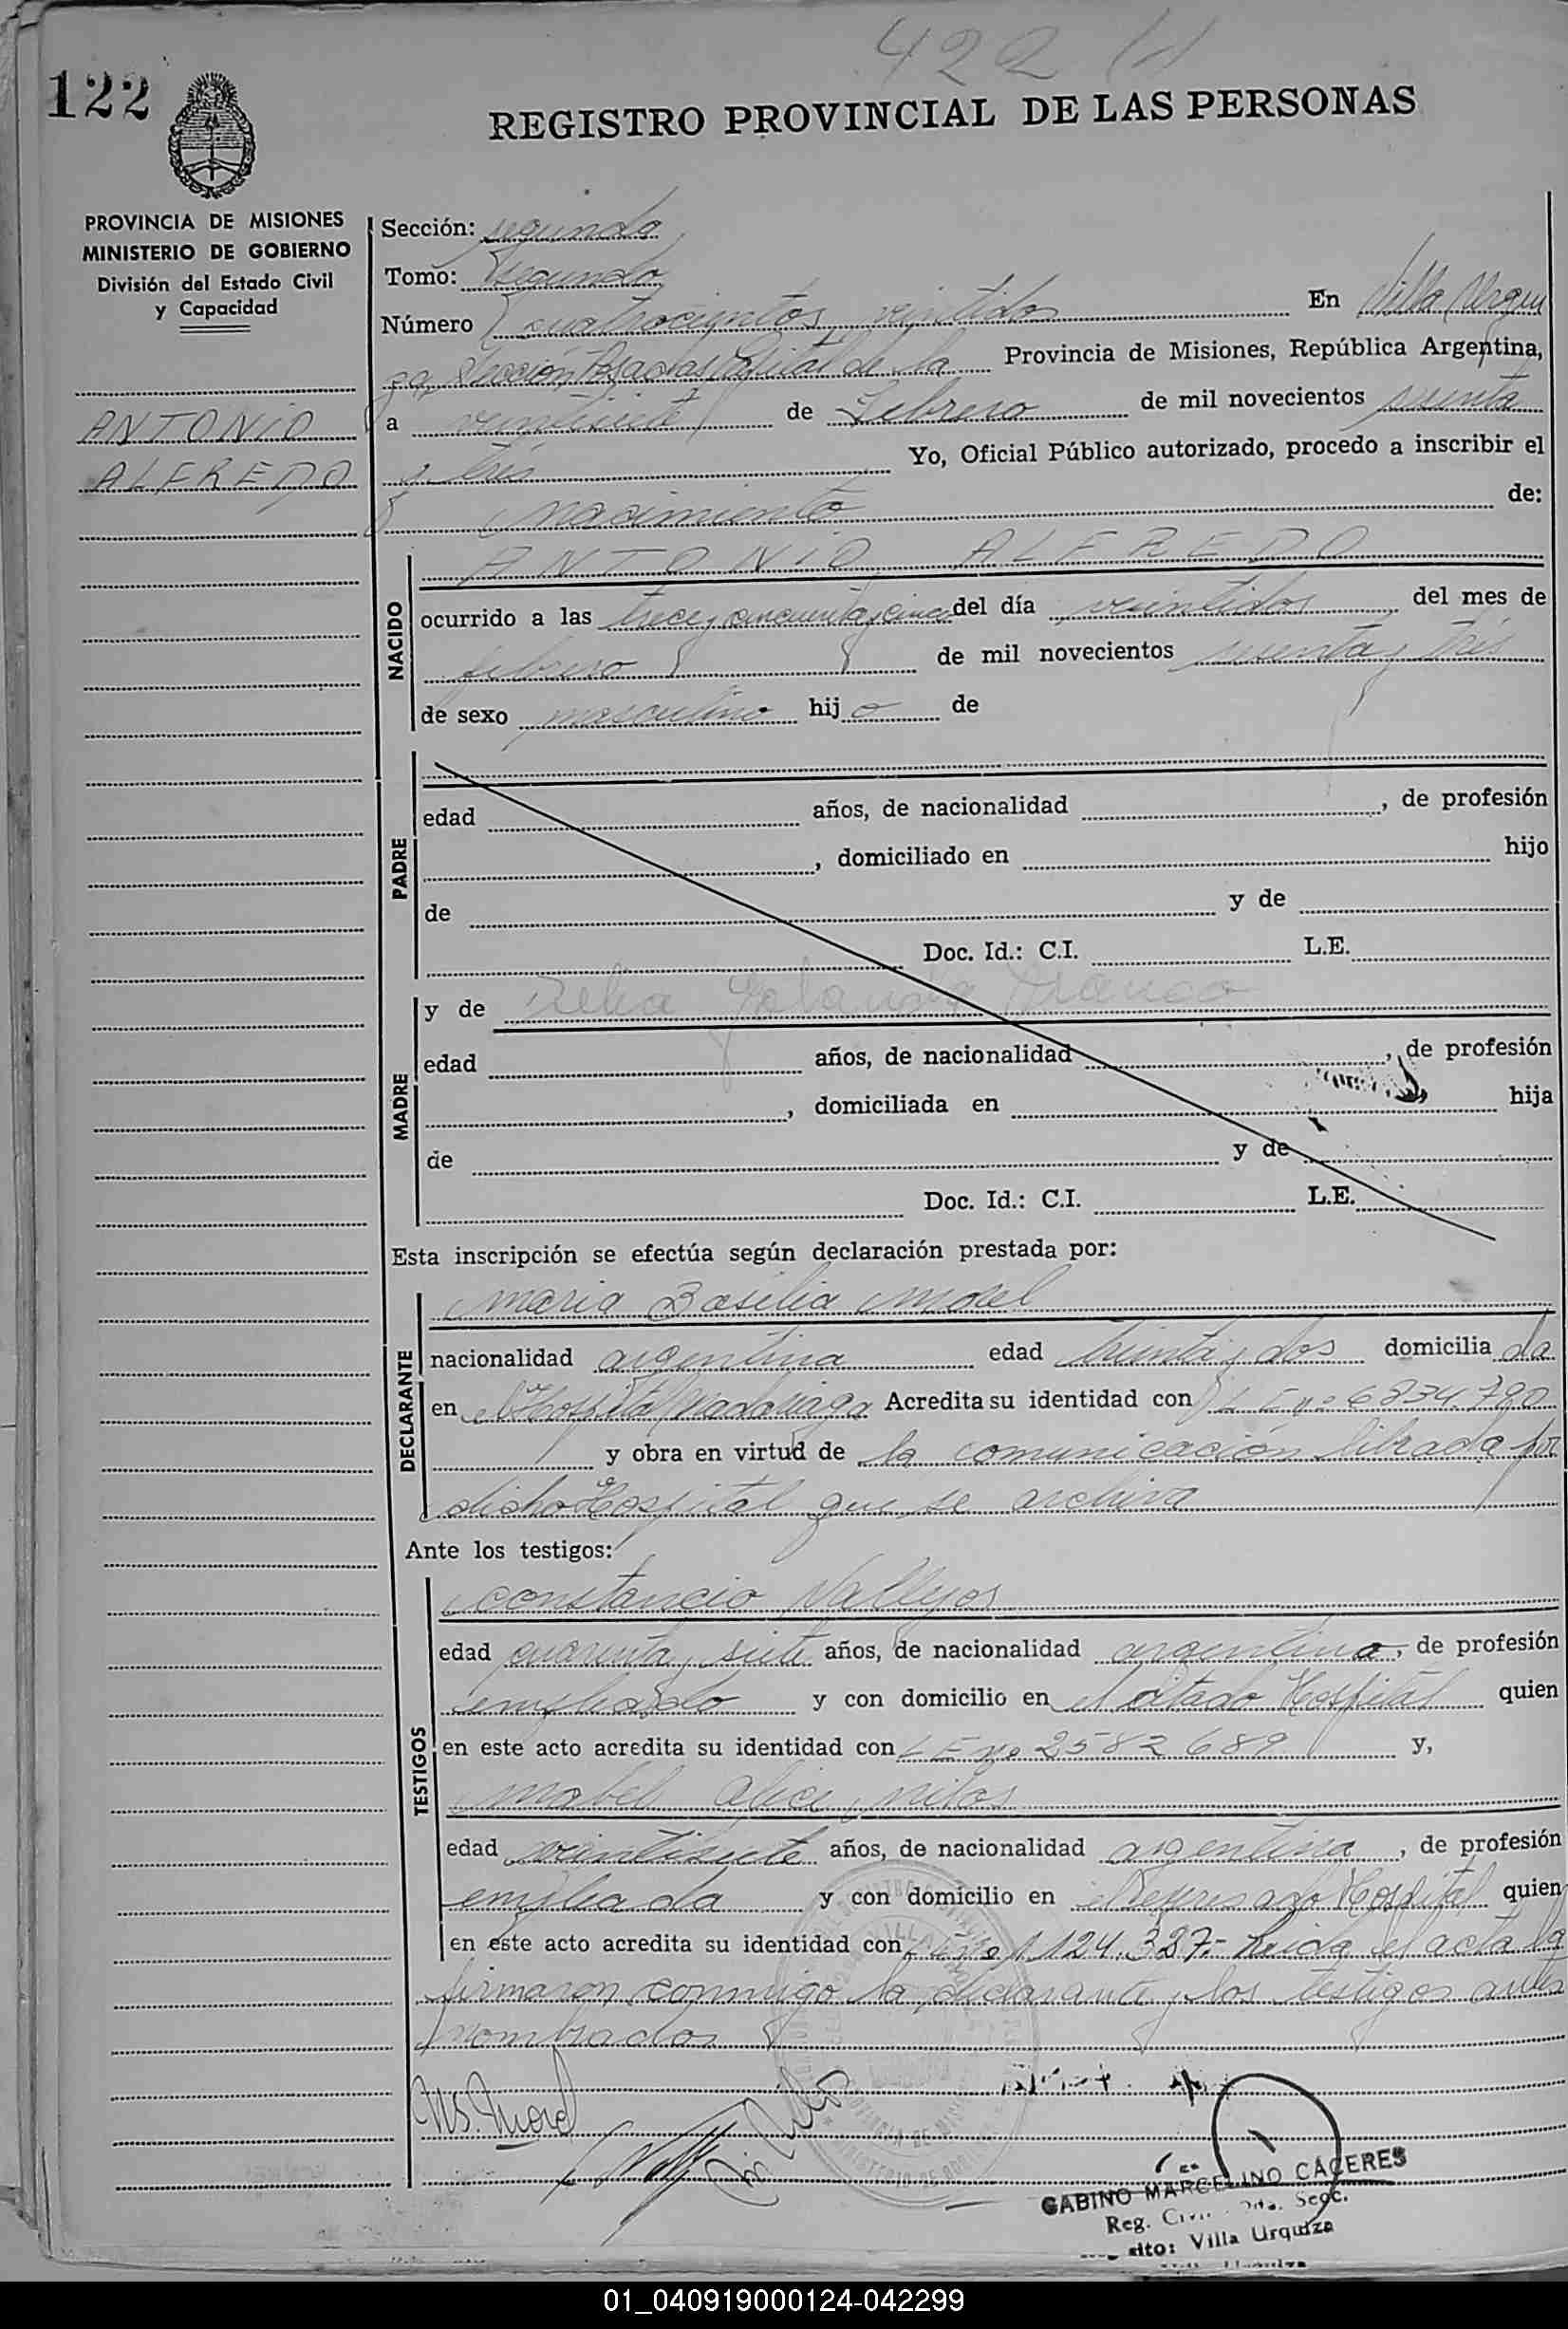 422
122
REGISTRO PROVINCIAL DE LAS PERSONAS
PROVINCIA DE MISIONES
MINISTERIO DE GOBIERNO
División del Estado Civil
y Capacidad
ANTONIO
ALFREDO
Sección: segunda
Tomo: segundo
Número cuatrocientos veintidos En Villa Urqui
za, Sección Posadas Capital de la Provincia de Misiones, República Argentina,
a veintisiete de Febrero de mil novecientos sesenta
y tres Yo, Oficial Público autorizado, procedo a inscribir el
nacimiento de:
ANTONIO ALFREDO
NACIDO
ocurrido a las trece y cincuenta y cinco del día veintidos del mes de
febrero de mil novecientos sesenta y tres
de sexo masculino hijo de
PADRE
edad años, de nacionalidad , de profesión
, domiciliado en hijo
de y de
Doc. Id.: C.I. L.E.
y de Yolanda Franco
MADRE
edad años, de nacionalidad , de profesión
, domiciliada en hija
de y de
Doc. Id.: C.I. L.E.
Esta inscripción se efectúa según declaración prestada por:
Maria Basilia Morel
DECLARANTE
nacionalidad argentina edad treinta y dos domiciliada
en el Hospital Madariaga Acredita su identidad con L E nº 6834.790
y obra en virtud de la comunicación librada por
dicho Hospital que se archiva
Ante los testigos:
Constancio Vallejos
TESTIGOS
edad cuarenta y siete años, de nacionalidad argentino, de profesión
empleado y con domicilio en el citado Hospital quien
en este acto acredita su identidad con L E nº 2582689 y,
Mabel Alice
edad veintisiete años, de nacionalidad argentina, de profesión
empleada y con domicilio en el expresado Hospital quien
en este acto acredita su identidad con 1.124.327.- Leida el acta la
firmaron conmigo la declarante y los testigos antes
nombrados
M B. Morel
GABINO MARCELINO CACERES
Reg. Secc.
Villa Urquiza
01_040919000124-042299